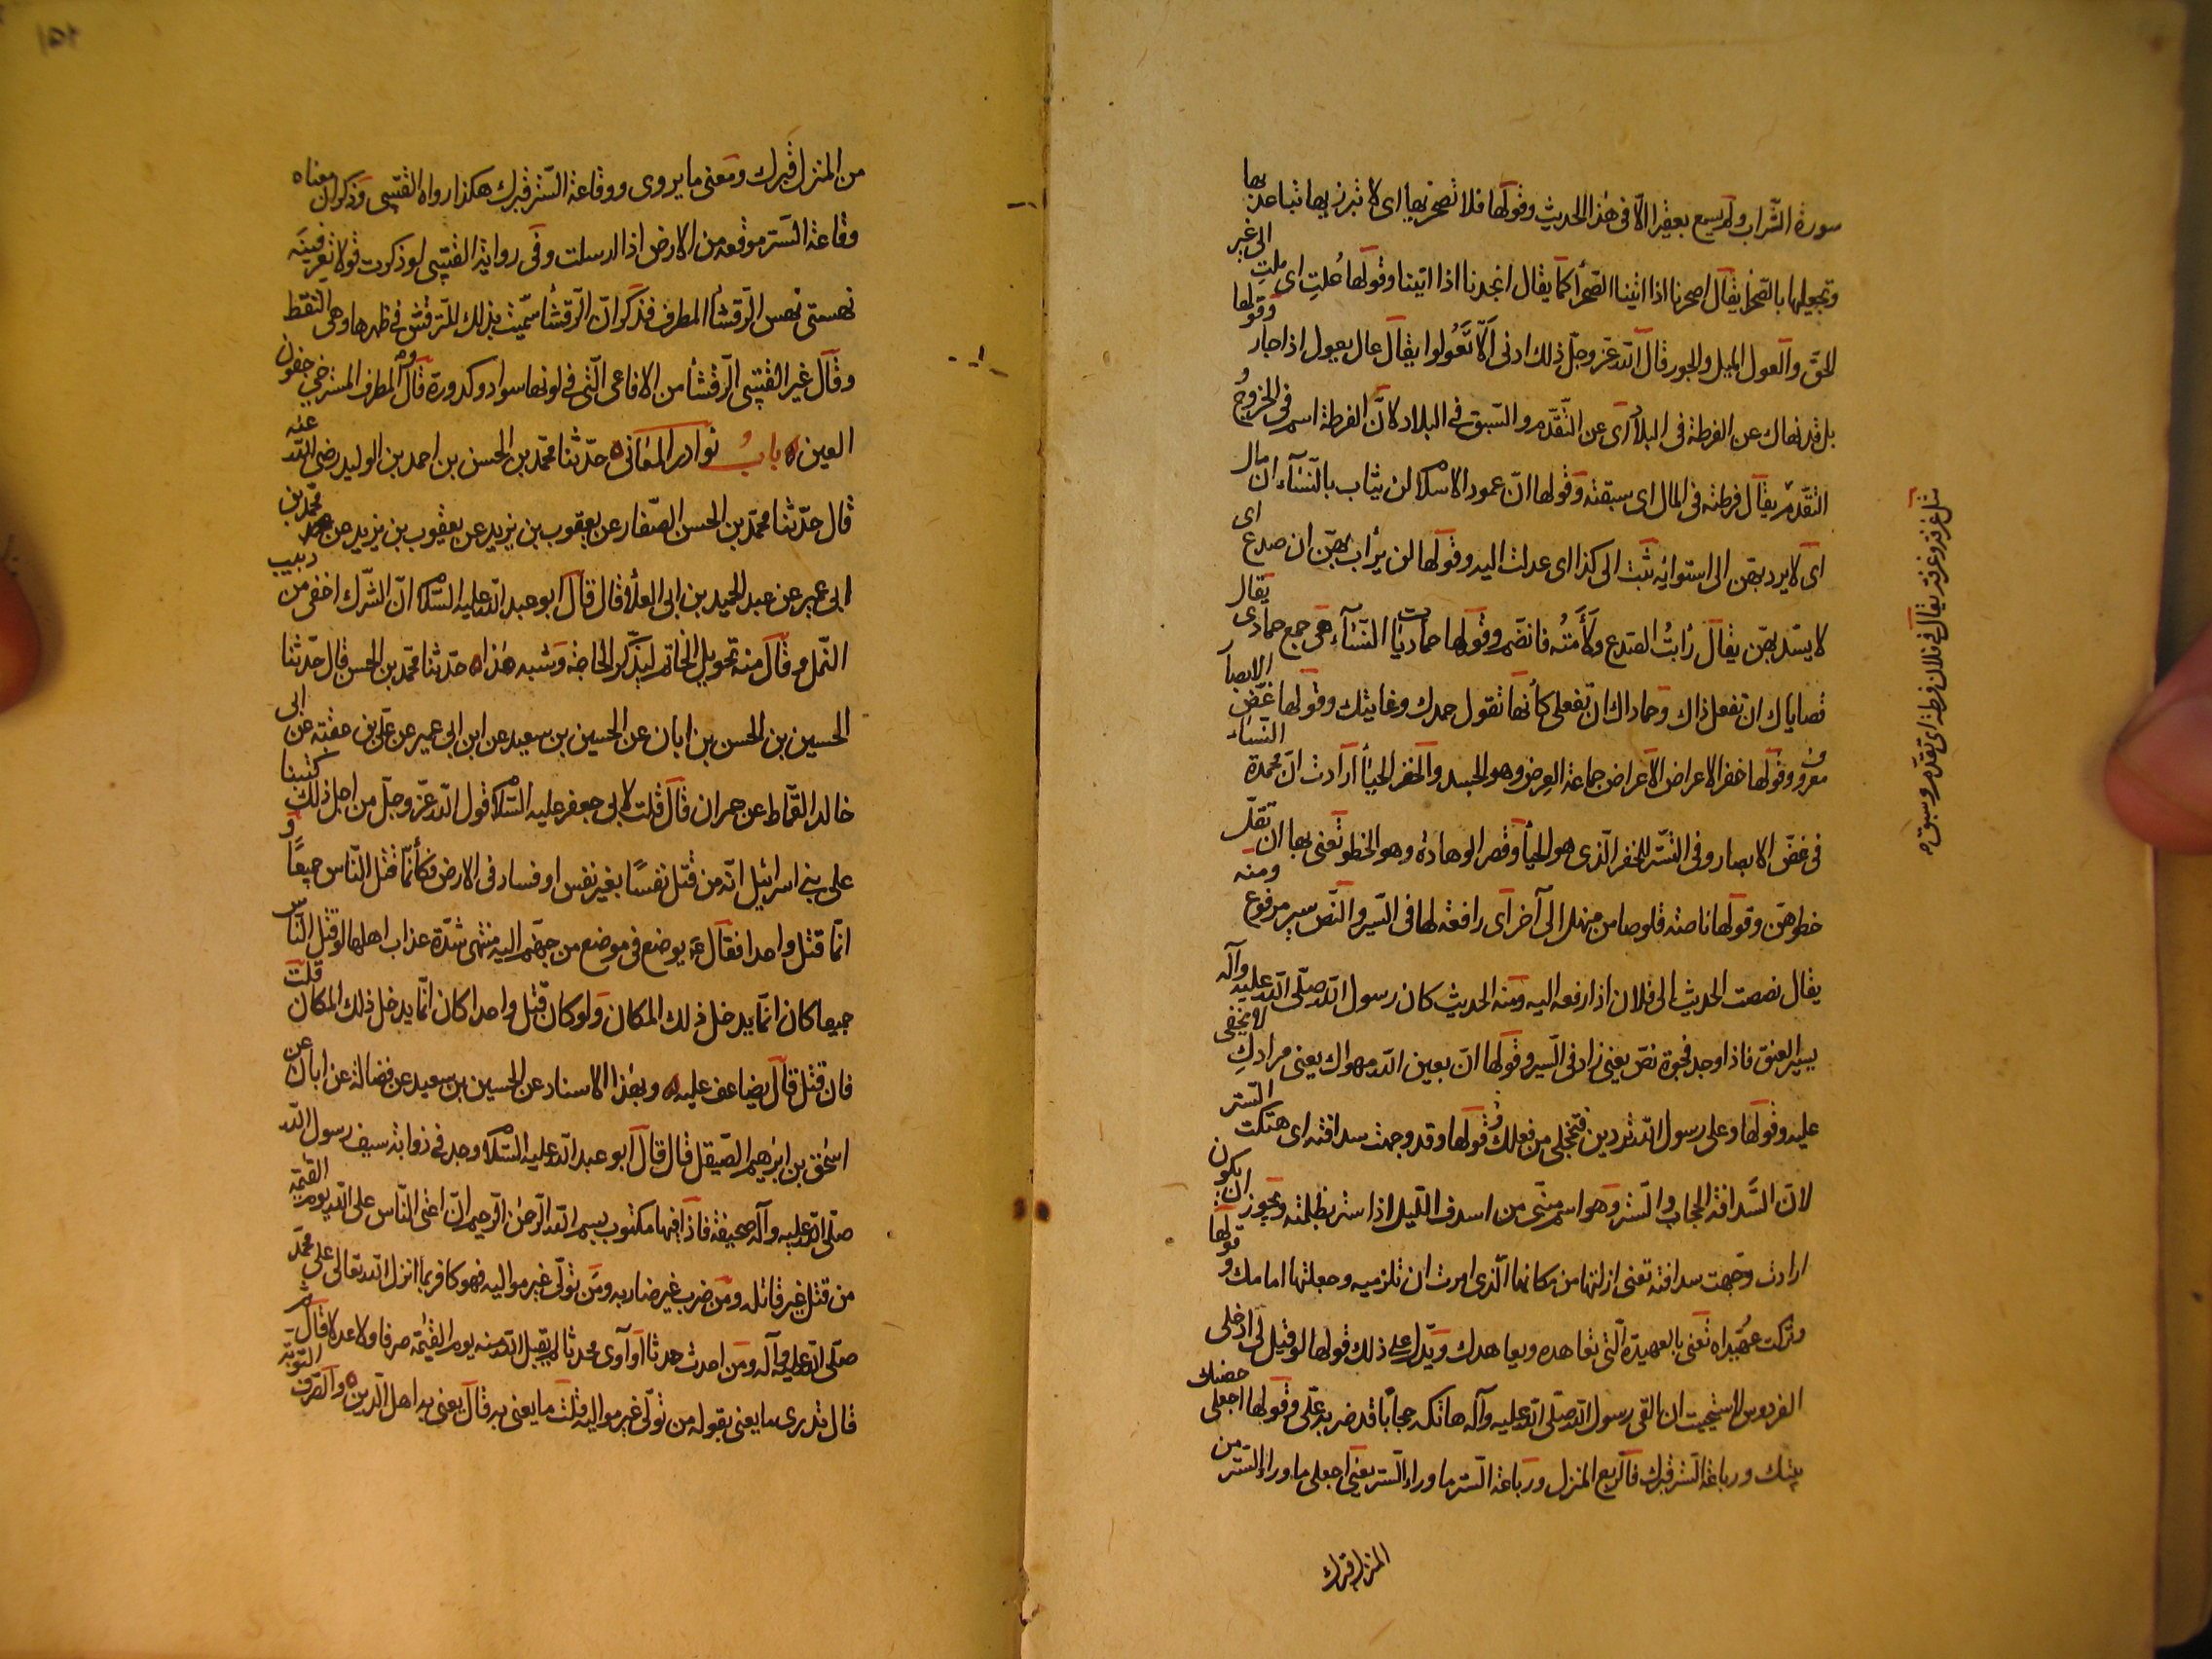 سورة الشراب ولم يسمع بعقيرا الّا فى هذا الحديث وقولها فلا تصحريها اى لا تبرزيها تباعدن بها
وتجعلها بالصحرا يقال اصحرنا اذا اتينا الصحرأ كما يقال انجدنا اذا اتينا وقولها عُلتِ اى ملتِ الى غير
الحق والعول الميل والجور قال الله عزّ وجلّ ذلك ادنى اَلّا تَعُولوا يقال عال يعول اذا جار وقولها
بل قد نهاك عن الفرطة فى البلاد اى عن التّقدّم والسّبق فى البلاد لانّ الفرطة اسم فى الخروج و
التقدّم يقال فرطته فى المال اى سبقته وقولها انّ عمود الاسلام لن يثاب بالنّسَآء ان مال
اى لا يرد بهنّ الى استوائه ثبت الى كذا اى عدلت اليه وقولها لن يرأب بهنّ ان صدع اى
لا يسّد بهنّ يقال رَابتُ الصدع ولَأَمتُه فانضّم وقولها حماديات النّسَآء هى جمع حمادى يقال
قصاياك ان تفعل ذاك وحماداك ان تفعلى كأنها تقول حمدك وغايتك وقولها غضّ الابصار
معروف وقولها خفر الاعراض الاعراض جماعة العِرض وهو الجسد والخفر الحيأ أرادت انّ محمدة النّساء
فى غضّ الابصار وفى التستّر للخفر الّذى هو الحيأ وقصر الوهادة وهو الخطو تعنى بها ان تقلّ
خطوهنّ وقولها ناصته قلوصا من منهل الى آخر اى رافعة لها فى السّير والنّص سير مرفوع ومنه
يقال نصصت الحديث الى فلان اذا رفعه اليه ومنه الحديث كان رسول الله صلّى الله عليه وآله
يسير العنق فاذا وجد فجوة نصّ يعنى زاد فى السّير وقولها انّ بعين الله مهواك يعنى مرادكِ لا يخفى
عليه وقولها وعلى رسول الله تردين فتخجلى من فعلك وقولها وقد وجهت سدافته اى هتكت السّتر
لانّ السَّدافة الحجاب والسّتر وهو اسم مبنّى من اسدف اللّيل اذا ستر بظلمته ويجوز ان يكون
ارادت وجّهت سدافته تعنى ازلتها من مكانها الّذى امرت ان تلزميه وجعلتها امامك وقولها
وتركت عُهّيداه تعنى بالعهيدة الّتى تعاهده ويعاهدك ويدّل على ذلك قولها لو قيل لى ادخلى
الفردوس لاستحييت ان القى رسول الله صلّى الله عليه وآله هاتكه حجاًبا قد ضربه علّى وقولها اجعلى حصنك
بيتك ورباعة السّتر قبرك فالربع المنزل ورباعة السّتر ما وراء السّتر يعنى اجعلى ما وراء السّتر من
المنزل قبرك
مثل غرفة وغرفة يقال فى فلان فرطة اى تقدّم وسبق
من المنزل قبرك ومعنى ما يروى ووقاعة السّتر قبرك هكذا رواه القتّيبى وذكر ان معناه
وقاعة السّتر موقعه من الارض اذا ارسلت وفى رواية القتيبى لو ذكرت قولا تعرفينه
نهستنى نهس الرّقشأ المطرف فذكر انّ الرّقشأ سمّيت بذلك للترقّش فى ظهرها وهى النقط
وقال غير القتيبى الرّقشأ من الافاعى الّتى فى لونها سواد وكدورة قال والمطرف المسترخى جفون
العين باب نوادر المعانى حدّثنا محمّد بن الحسن بن احمد بن الوليد رضى الله عنه
قال حدّثنا محمّد بن الحسن الصّفار عن يعقوب بن يزيد عن يعقوب بن يزيد عن محمّد بن
ابى عمير عن عبد الحميد بن ابى العلأ قال قال ابو عبد الله عليه السّلام انّ الشّرك اخفى من دبيب
النّمل وقال منه تحويل الخاتم ليذّكر الحاجة وشبه هذا حدّثنا محمّد بن الحسن قال حدّثنا
الحسين بن الحسن بن ابان عن الحسين بن سعيد عن ابن ابى عمير عن علىّ بن عقبة عن ابى
خالد القمّاط عن حمران قال قلت لابى جعفر عليه السّلام قول الله عزّ وجلّ من اجل ذلك كتبنا
على بنى اسرائيل انّه من قتل نفسًا بغير نفس او فساد فى الارض فكأنّما قتل النّاس جميعًا و
انّما قتل واحدا فقال ع يوضع فى موضع من جهنّم اليه منتهى شدّة عذاب اهلها لو قتل النّاس
جميعا كان انّما يدخل ذلك المكان ولو كان قتل واحدا كان انّما يدخل ذلك المكان قلت
فان قتل قال يضاعف عليه وبهذا الاسناد عن الحسين بن سعيد عن فضالة عن ابان عن
اسحق بن ابرهيم الصّيقل قال قال ابو عبد الله عليه السّلام وجد فى ذوابة سيف رسول الله
صلّى الله عليه وآله صحيفة فاذا فيها مكتوب بسم الله الرّحمن الرّحيم انّ اعتى النّاس على الله يوم القيمة
من قتل غير قاتله ومن ضرب غير ضاربه ومَن تولّى غير مواليه فهو كافر بما انزل الله تعالى على محمّد
صلّى الله عليه وآله ومن احدث حدثا او آوى محدثا لم يقبل الله منه يوم القيمة صرفا ولا عدلا قال ثم
قال تدرى ما يعنى بقوله من تولّى غير مواليه قلت ما يعنى به قال يعنى به اهل الدّين والصّرف التوبة